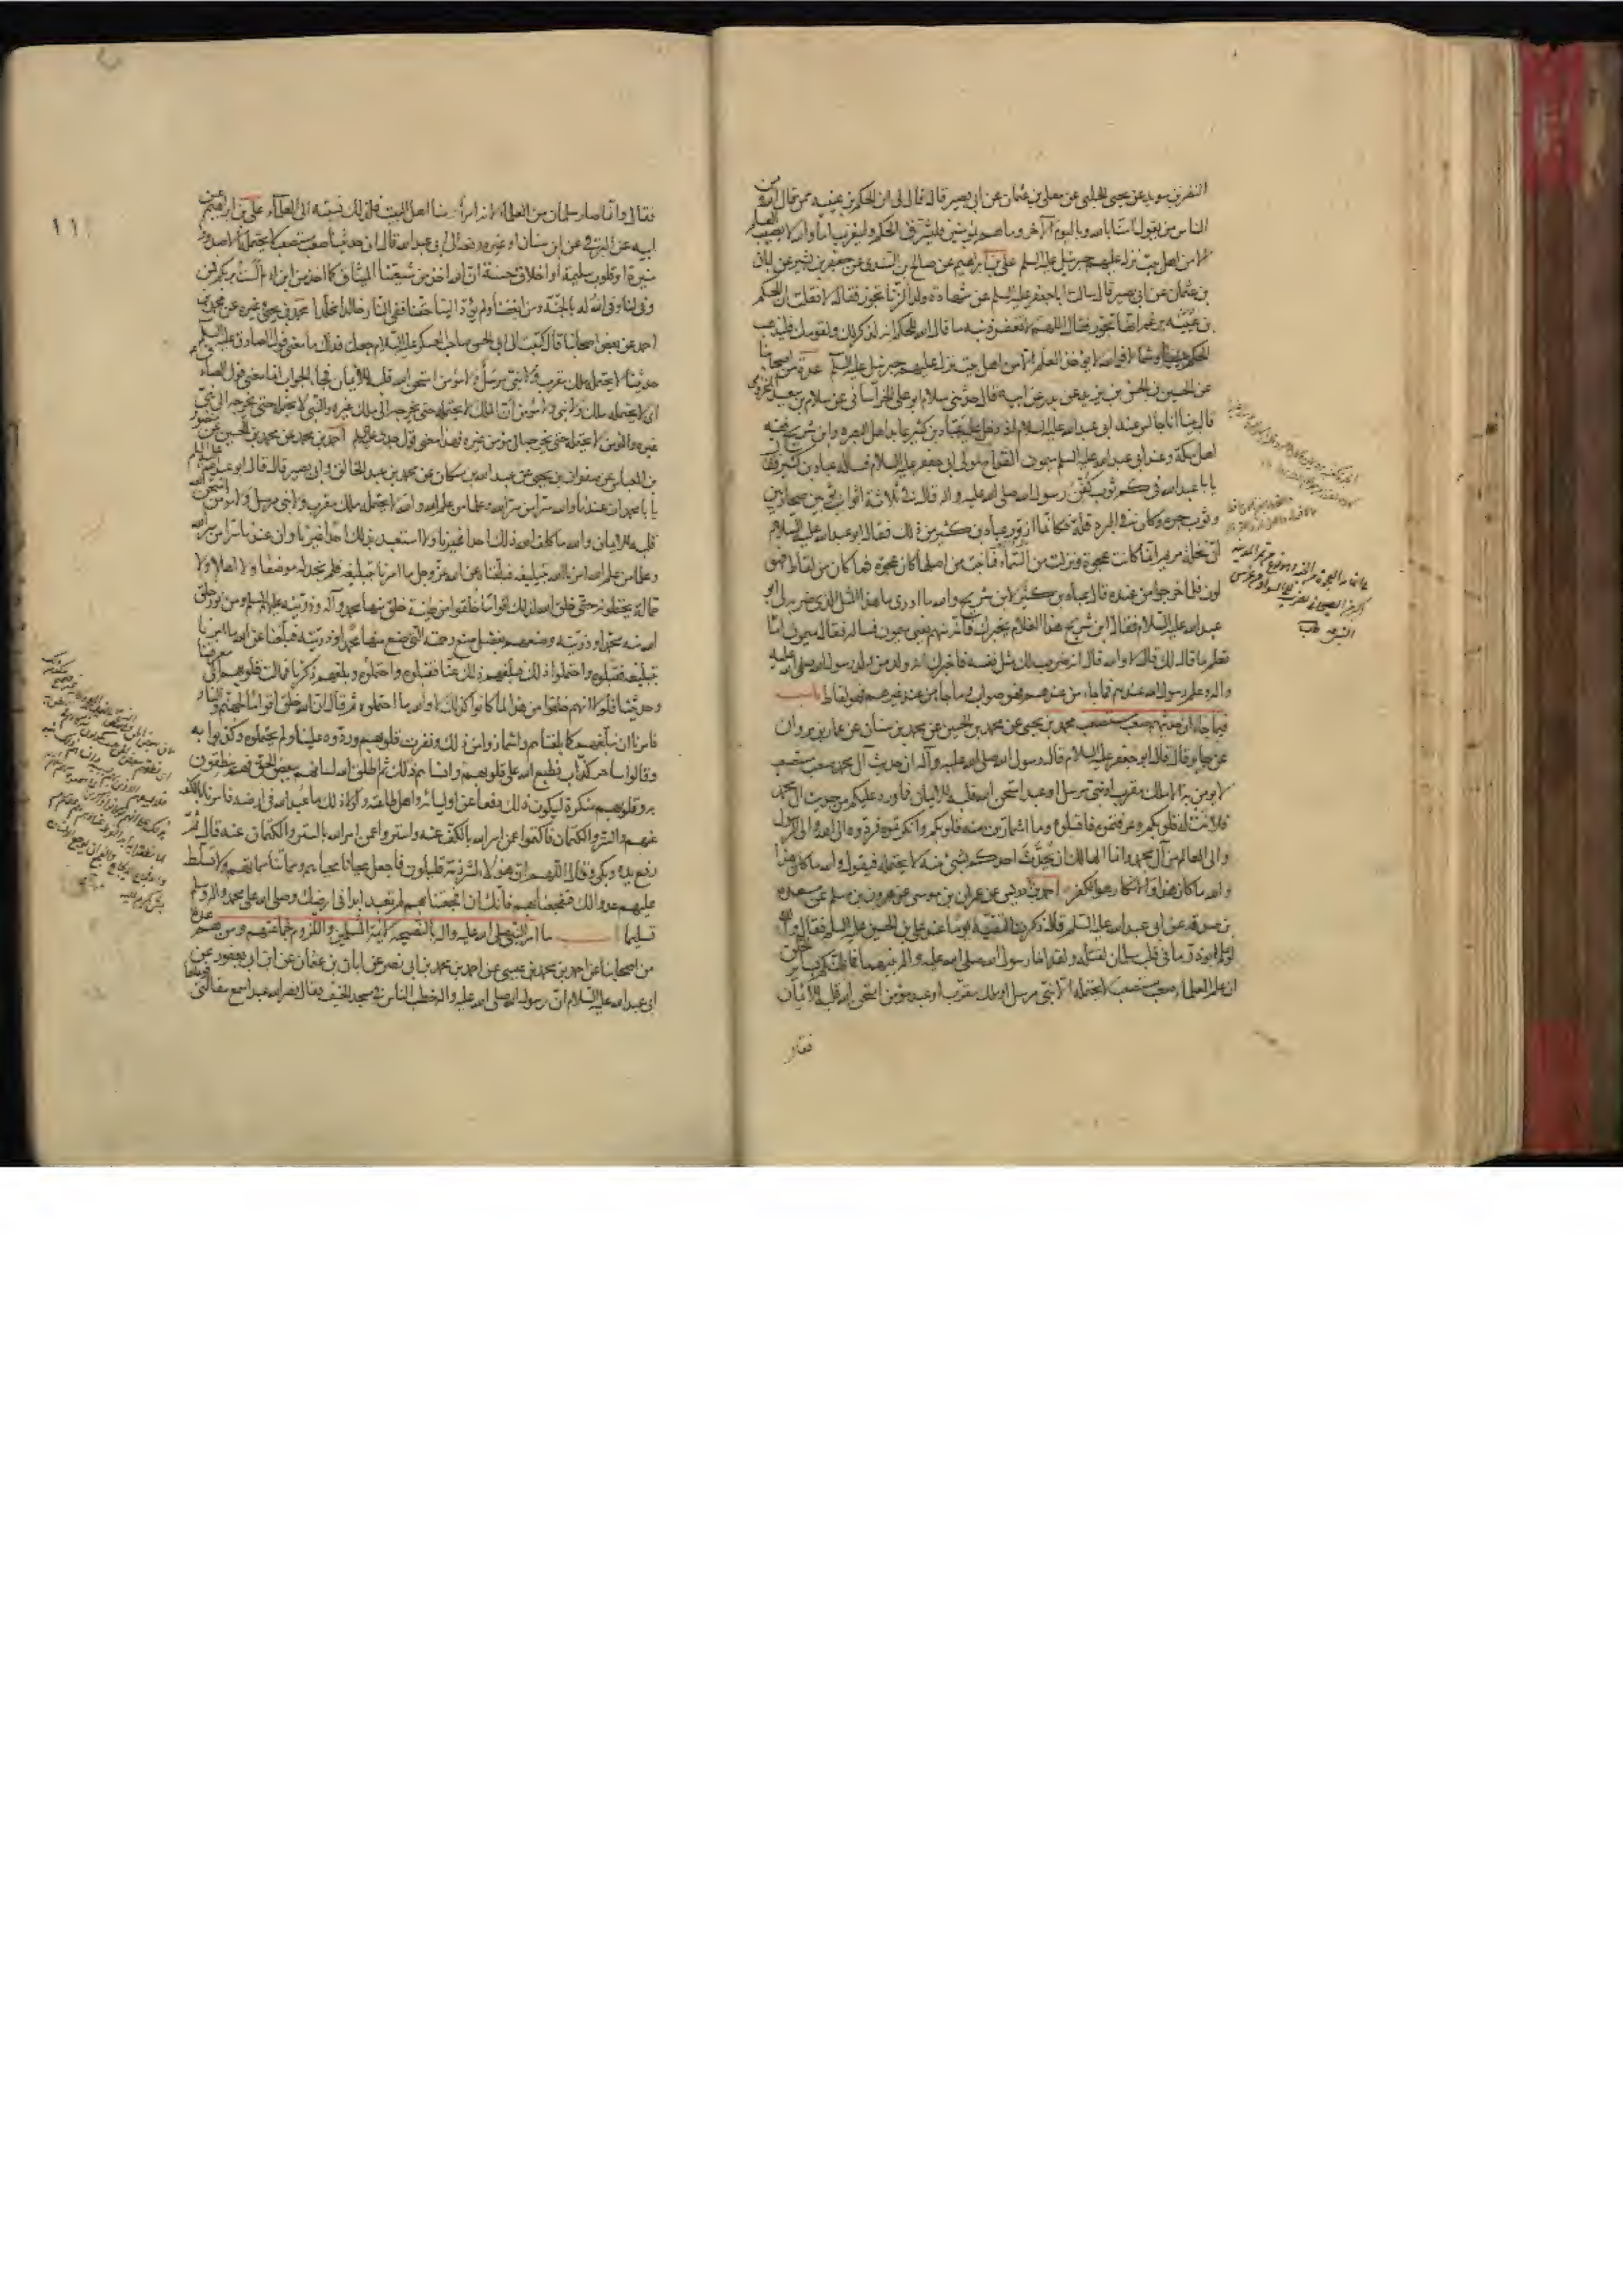 النضر بن سويد عن يحيى الحلبى عن معلى بن عثمان عن ابى بصير قال قال لى ان الحكم بن عتيبه ممن قال الله ومن
الناس من يقول امنا بالله وباليوم الآخر وما هم بمؤمنين فليشرق الحكم وليغرب اما والله لا يصيب العلم
الا من اهل بيت نزل عليهم جبرئيل عليه السلم على بن ابراهيم عن صالح بن السندى عن جعفر بن بشير عن ابان
بن عثمان عن ابى بصير قال سالت ابا جعفر عليه السلم عن شهادة ولد الزنا تجوز فقال لا فقلت ان الحكم
بن عتيبه يزعم انها تجوز فقال اللهم لا تغفر ذنبه ما قال الله للحكم انه لذكر لك ولقومك فليذهب
الحكم يمينا وشمالا فوالله لا يؤخذ العلم الا من اهل بيت نزل عليهم جبرئيل عليه السلم عدة من اصحابنا
عن الحسين بن الحسن بن يزيد عن بدر عن ابيه قال حدثنى سلام ابو على الخراسانى عن سلام بن سعيد المخزومى
قال بينا انا جالس عند ابى عبد الله عليه السلام اذ دخل عليه عباد بن كثير عابد اهل البصره وابن شريح فقيه
اهل مكة وعند ابى عبد الله عليه السلم ميمون القداح مولى ابى جعفر عليه السلام فساله عباد بن كثير فقال
يابا عبد الله فى كم ثوب كفن رسول الله صلى الله عليه واله قال فى ثلاثة اثواب ثوبين صحاريين
وثوب حبره وكان فى البرد قلة فكانما ازور عباد بن كثير من ذلك فقال ابو عبد الله عليه السلام
ان نخلة مريم انما كانت عجوة ونزلت من السماء فما نبت من اصلها كان عجوة فما كان من لقاط فهو
لون فلما خرجوا من عنده قال عباد بن كثير لابن شريح والله ما ادرى ما هذا المثل الذى ضربه لى ابو
عبد الله عليه السلام فقال ابن شريح هذا الغلام يخبرك فانه منهم يعنى ميمون فساله فقال ميمون اما
تعلم ما قال لك قال لا والله قال انه ضرب لك مثل نفسه فاخبرك انه ولد من ولد رسول الله صلى الله عليه
واله وعلم رسول الله عندهم فما جاء من عندهم فهو صواب وما جاء من عند غيرهم فهو لقاط باب
فيما جاء ان حديثهم صعب مستصعب محمد بن يحيى عن محمد بن الحسين عن محمد بن سنان عن عمار بن مروان
عن جابر قال قال ابو جعفر عليه السلام قال رسول الله صلى الله عليه وآله ان حديث آل محمد صعب مستصعب
لا يومن به الا ملك مقرب او نبى مرسل او عبد امتحن الله قلبه للايمان فما ورد عليكم من حديث ال محمد
فلانت له قلوبكم وعرفتموه فاقبلوه وما اشمازت منه قلوبكم وانكرتموه فردوه الى الله والى الرسول
والى العالم من آل محمد وانما الهالك ان يحدث احدكم بشئ منه لا يحتمله فيقول والله ما كان هذا
والله ما كان هذا والانكار هو الكفر احمد بن ادريس عن عمران بن موسى عن هرون بن مسلم عن مسعده
بن صدقه عن ابى عبد الله عليه السلم قال ذكرت التقيه يوما عند على بن الحسين عليه السلم فقال والله
لو علم ابوذر ما فى قلب سلمان لقتله ولقد اخا رسول الله صلى الله عليه واله بينهما فما ظنكم بسائر الخلق
ان علم العلماء صعب مستصعب لا يحتمله الا نبى مرسل او ملك مقرب او عبد مؤمن امتحن الله قلبه للايمان
فقال
١١١
فقال وانما صار سلمان من العلماء لانه امرؤ منا اهل البيت فلذلك نسبته الى العلماء على بن ابراهيم عن
ابيه عن البرقى عن ابن سنان او غيره رفعه الى ابى عبد الله قال ان حديثنا صعب مستصعب لا يحتمله الا صدور
منيرة او قلوب سليمة او اخلاق حسنة ان الله اخذ من شيعتنا الميثاق كما اخذ من بنى ادم الست بربكم فمن
وفى لنا وفى الله له بالجنة ومن ابغضنا ولم يؤد الينا حقنا ففى النار خالدا مخلدا محمد بن يحيى وغيره عن محمد بن
احمد عن بعض اصحابنا قال كتبت الى ابى الحسن صاحب العسكر عليه السلام جعلت فداك ما معنى قول الصادق عليه السلم
حديثنا لا يحتمله ملك مقرب ولا نبى مرسل ولا مؤمن امتحن الله قلبه للايمان فجاء الجواب انما معنى قول الصادق
اى لا يحتمله ملك ولا نبى ولا مؤمن ان الملك لا يحتمله حتى يخرجه الى ملك غيره والنبى لا يحتمله حتى يخرجه الى نبى
غيره والمؤمن لا يحتمله حتى يخرجه الى مؤمن غيره فهذا معنى قول جدى عليه السلم احمد بن محمد عن محمد بن الحسين عن منصور
بن العباس عن صفوان بن يحيى عن عبد الله بن مسكان عن محمد بن عبد الخالق وابى بصير قال قال ابو عبد الله عليه السلام
يا با محمد ان عندنا والله سرا من سر الله وعلما من علم الله والله لا يحتمله ملك مقرب ولا نبى مرسل ولا مؤمن امتحن الله
قلبه للايمان والله ما كلف الله ذلك احدا غيرنا ولا استعبد بذلك احدا غيرنا وان عندنا سرا من سر الله
وعلما من علم الله امرنا الله بتبليغه فبلغنا عن الله عز وجل ما امرنا بتبليغه فلم نجد له موضعا ولا اهلا ولا
حمالة يحتملونه حتى خلق الله لذلك اقواما خلقوا من طينة خلق منها محمد وآله وذريته عليهم السلم ومن نور خلق
الله منه محمدا وذريته وصنعهم بفضل صنع رحمته التى صنع منها محمدا وذريته فبلغنا عن الله ما امرنا
بتبليغه فقبلوه واحتملوا ذلك فبلغهم ذلك عنا فقبلوه واحتملوه وبلغهم ذكرنا فمالت قلوبهم الى معرفتنا
وحديثنا فلولا انهم خلقوا من هذا لما كانوا كذلك لا والله ما احتملوه ثم قال ان الله خلق اقواما لجهنم والنار
فامرنا ان نبلغهم كما بلغناهم واشمازوا من ذلك ونفرت قلوبهم وردوه علينا ولم يحتملوه وكذبوا به
وقالوا ساحر كذاب فطبع الله على قلوبهم وانساهم ذلك ثم اطلق الله لسانهم ببعض الحق فهم ينطقون
به وقلوبهم منكرة ليكون ذلك دفعا عن اوليائه واهل طاعته ولولا ذلك ما عبد الله فى ارضه فامرنا بالكف
عنهم والستر والكتمان فاكتموا عمن امر الله بالكف عنه واستروا عمن امر الله بالستر والكتمان عنه قال ثم
رفع يده وبكى وقال اللهم ان هؤلاء لشرذمة قليلون فاجعل محيانا محياهم ومماتنا مماتهم ولا تسلط
عليهم عدوا لك فتفجعنا بهم فانك ان افجعتنا بهم لم تعبد ابدا فى ارضك وصلى الله على محمد واله وسلم
تسليما ما امر النبى صلى الله عليه واله بالنصيحة لائمة المسلمين واللزوم لجماعتهم ومن هم عدة
من اصحابنا عن احمد بن محمد بن عيسى عن احمد بن محمد بن ابى نصر عن ابان بن عثمان عن ابن ابى يعفور عن
ابى عبد الله عليه السلام ان رسول الله صلى الله عليه واله خطب الناس فى مسجد الخيف فقال نصر الله عبدا سمع مقالتى فوعاها